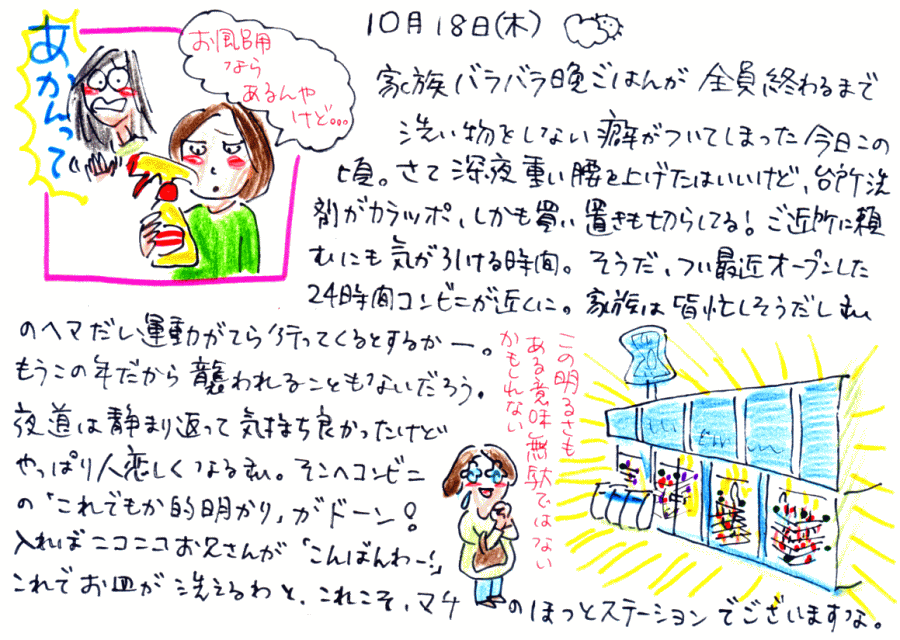 10月18日(木)
あかんって
お風呂用
なら
あるんや
けど…
家族バラバラ晩ごはんが全員終わるまで
洗い物をしない癖がついてしまった今日この
頃。さて深夜重い腰を上げたはいいけど、台所洗
剤がカラッポ、しかも買い置きも切らしてる！ご近所に頼
むにも気が引ける時間。そうだ、つい最近オープンした
24時間コンビニが近くに。家族は皆忙しそうだし私
のヘマだし運動がてら行ってくるとするかー。
もうこの年だから襲われることもないだろう。
夜道は静まり返って気持ち良かったけど
やっぱり人恋しくなる私。そこへコンビニ
の「これでもか的明かり」がドーン！
入ればニコニコお兄さんが「こんばんわー！」
これでお皿が洗えるわと、これこそ、マチのほっとステーションでございますな。
この明るさも
ある意味無駄ではない
かもしれない